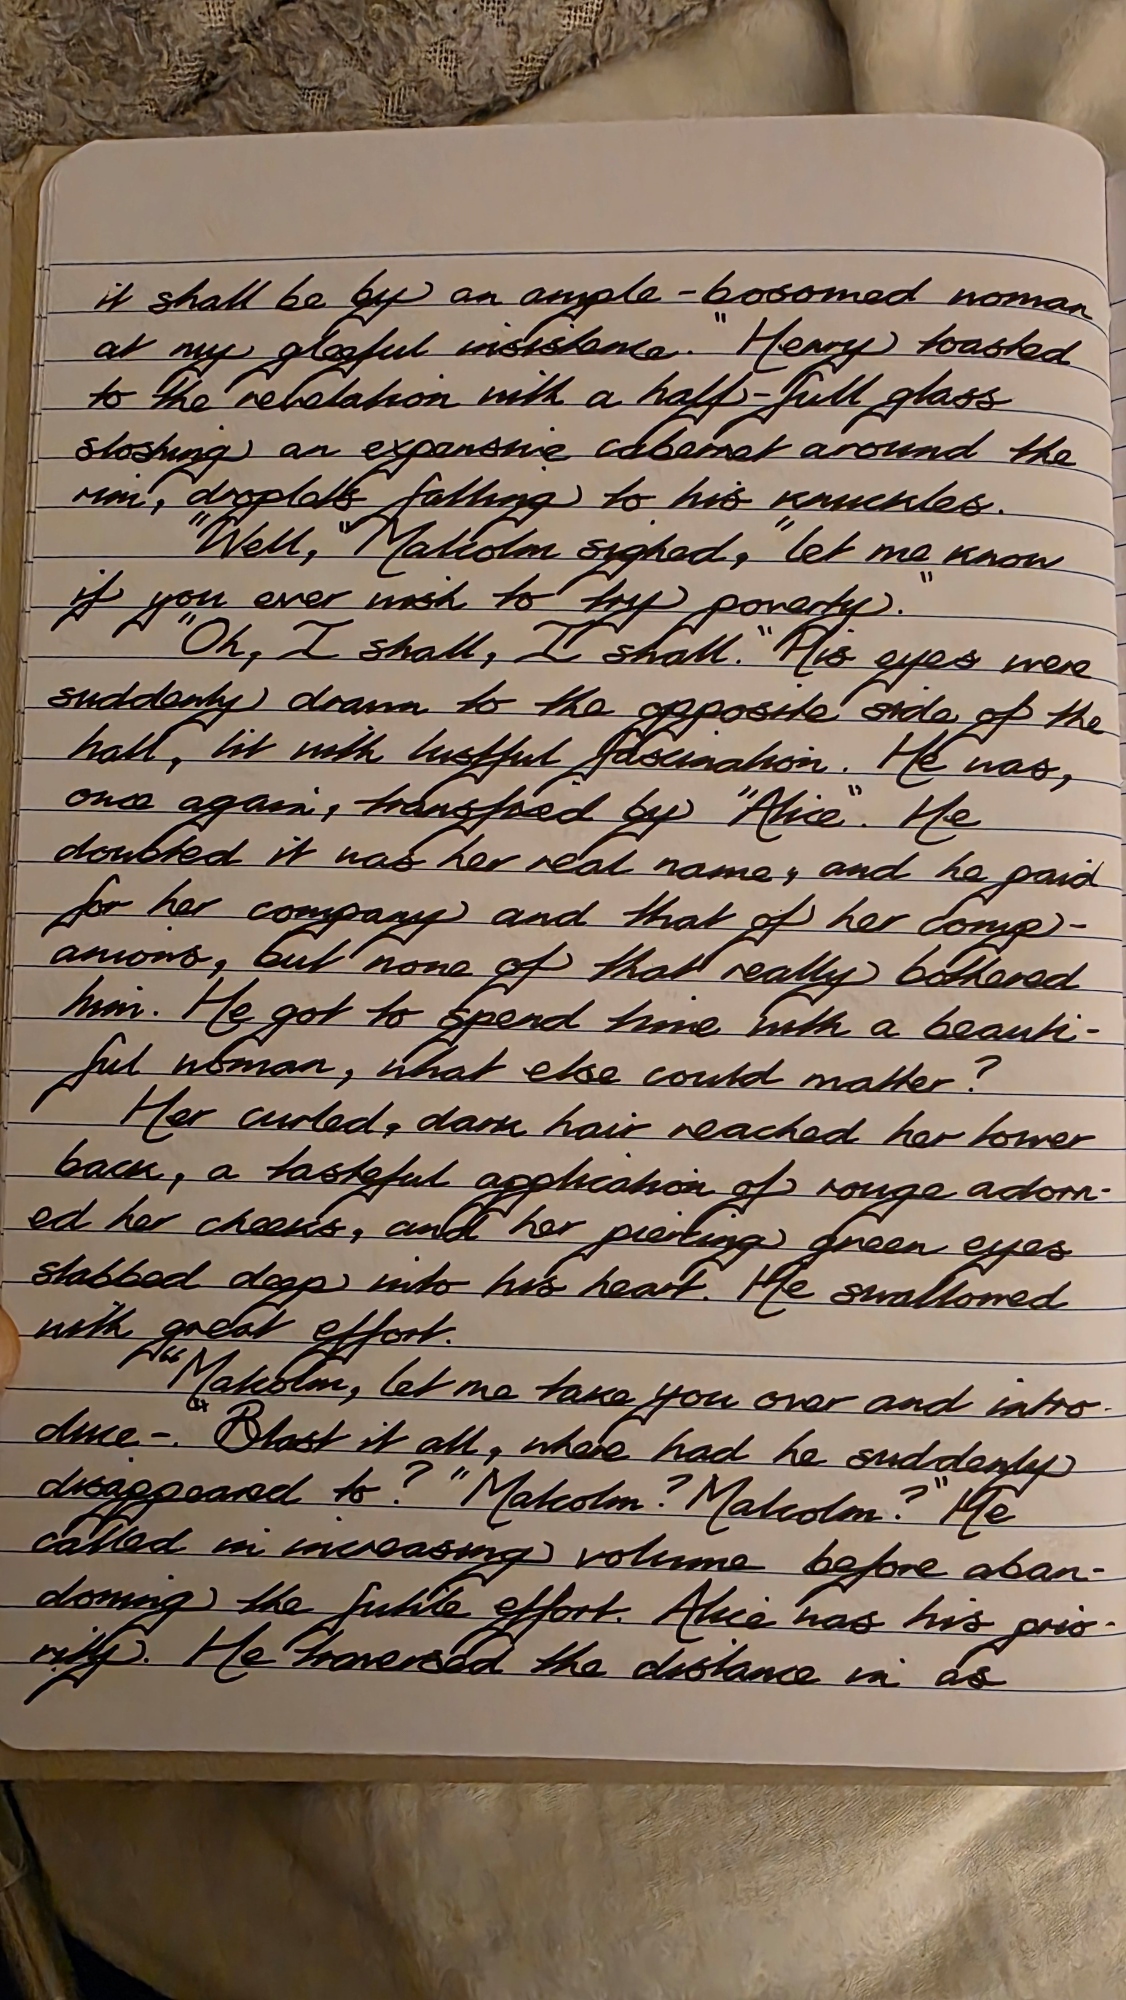 it shall be by an ample-bosomed woman
at my gleeful insistence." Henry toasted
to the revelation with a half-full glass
sloshing an expensive cabernet around the
rim, droplets falling to his knuckles.
"Well," Malcolm sighed, "let me know
if you ever wish to try poverty."
"Oh, I shall, I shall." His eyes were
suddenly drawn to the opposite side of the
hall, lit with lustful fascination. He was,
once again, transfixed by "Alice". He
doubted it was her real name, and he paid
for her company and that of her comp-
anions, but none of that really bothered
him. He got to spend time with a beauti-
ful woman, what else could matter?
Her curled, dark hair reached her lower
back, a tasteful application of rouge adorn-
ed her cheeks, and her piercing green eyes
stabbed deep into his heart. He swallowed
with great effort.
"Malcolm, let me take you over and intro-
duce-." Blast it all, where had he suddenly
disappeared to? "Malcolm? Malcolm?" He
called in increasing volume before aban-
doning the futile effort. Alice was his prio-
rity. He traversed the distance in as